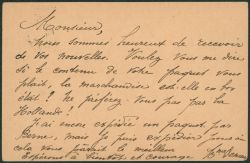 Monsieur,
Nous sommes heureux de recevoir
de vos nouvelles. Voulez vous me dire
si le contenu de votre paquet vous
plait, la marchandise est-elle en bon
état? Ne préférez vous pas par la
Hollande?
J'ai encore expédié un paquet par
Berne, mais je puis expédier jusqu'à
cela vous parait le meilleur
Espérons à bientôt et courage